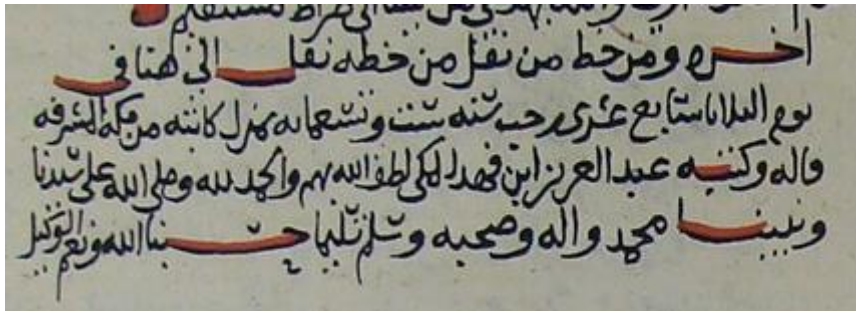 إلى صراط مستقيم
اخره ومن خط من نقل من خطه نقلت الى هنا في
يوم الثلاثا سابع عشرى رجب سنه ست وتسعمايه بمنزل كاتبه من مكة المشرفه
قاله وكتبه عبد العزيز ابن فهد المكى لطف الله بهم والحمد لله وصلى الله على سيدنا
ونبينا محمد واله وصحبه وسلم تسليما حسبنا الله ونعم الوكيل